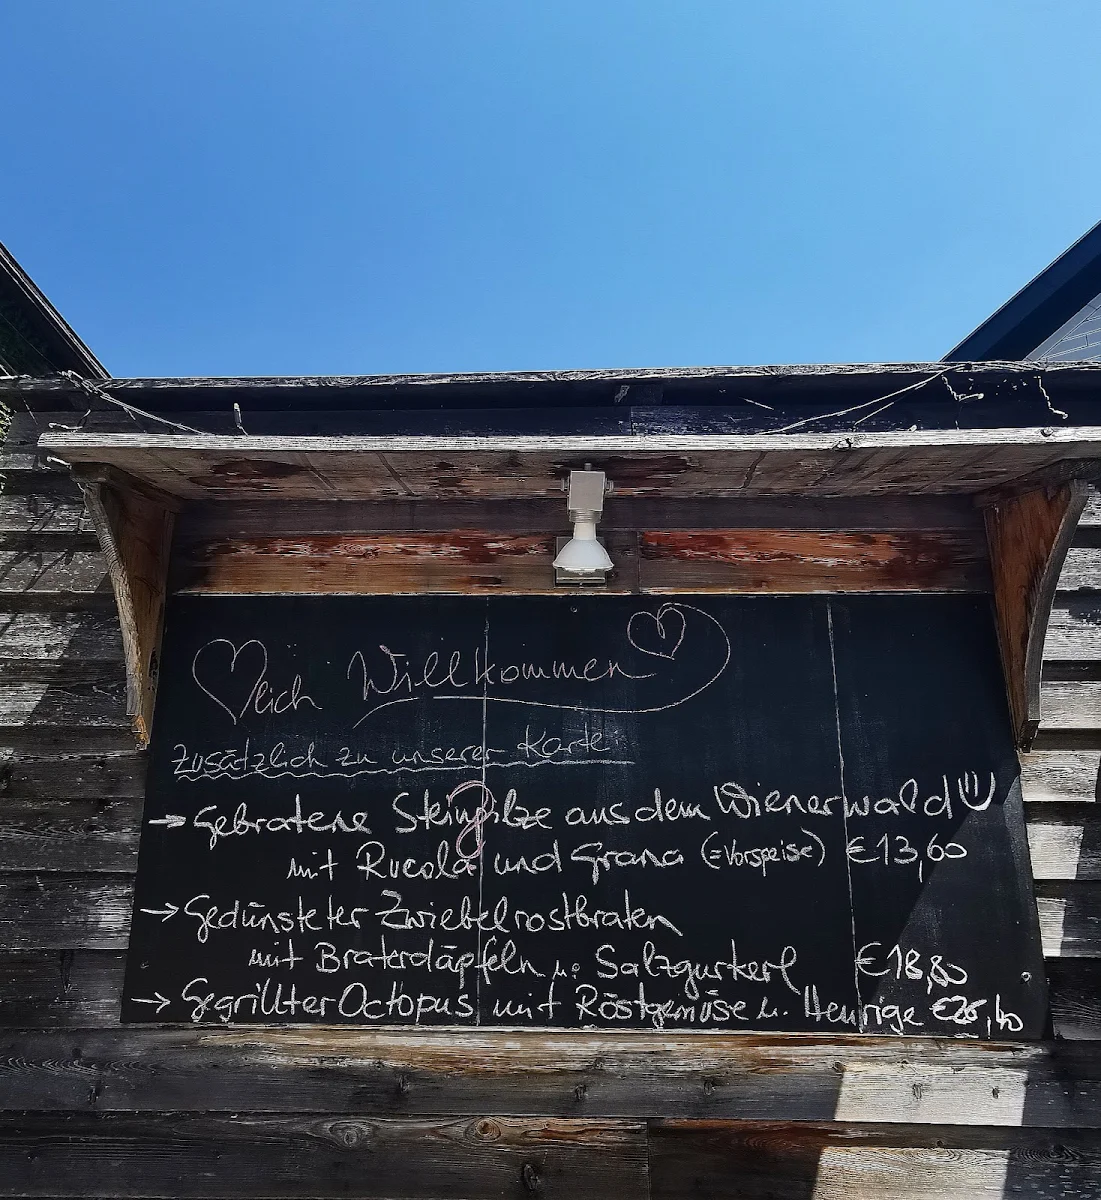 lich Willkommen
Zusätzlich zu unserer Karte
→ Gebratene Steinpilze aus dem Wienerwald
mit Rucola und Grana (=Vorspeise) €13,60
→ Gedünsteter Zwiebelrostbraten
mit Braterdäpfeln u. Salzgurkerl €18,80
→ Gegrillter Octopus mit Röstgemüse u. Heurige